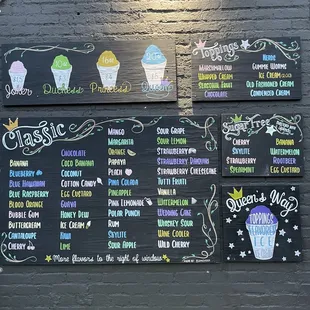 Joker
Duchess
Princess
Queen
8oz
10oz
16oz
32oz
Toppings
Marshmallow
Whipped Cream
Sour Cream
Chocolate
Nerds
Gummie Worms
Ice Cream
Old Fashioned Cream
Condensed Cream
Classic
Banana
Blueberry
Blue Hawaiian
Blue Raspberry
Blood Orange
Bubble Gum
Buttercream
Cantaloupe
Cherry
Chocolate
Coco Banana
Coconut
Cotton Candy
Egg Custard
Guava
Honey Dew
Ice Cream
Kiwi
Lime
Mango
Margarita
Orange
Papaya
Peach
Pina Colada
Pineapple
Pink Lemonade
Polar Punch
Rum
Skylite
Sour Apple
Sour Grape
Sour Lemon
Strawberry
Strawberry Daiquiri
Strawberry Cheesecake
Tutti Frutti
Vanilla
Watermelon
Wedding Cake
Whiskey Sour
Wine Cooler
Wild Cherry
More flavors to the right of window
Sugar Free
Cherry
Skylite
Strawberry
Spearmint
Banana
Watermelon
Rootbeer
Egg Custard
Queen's Way
Toppings
Layered